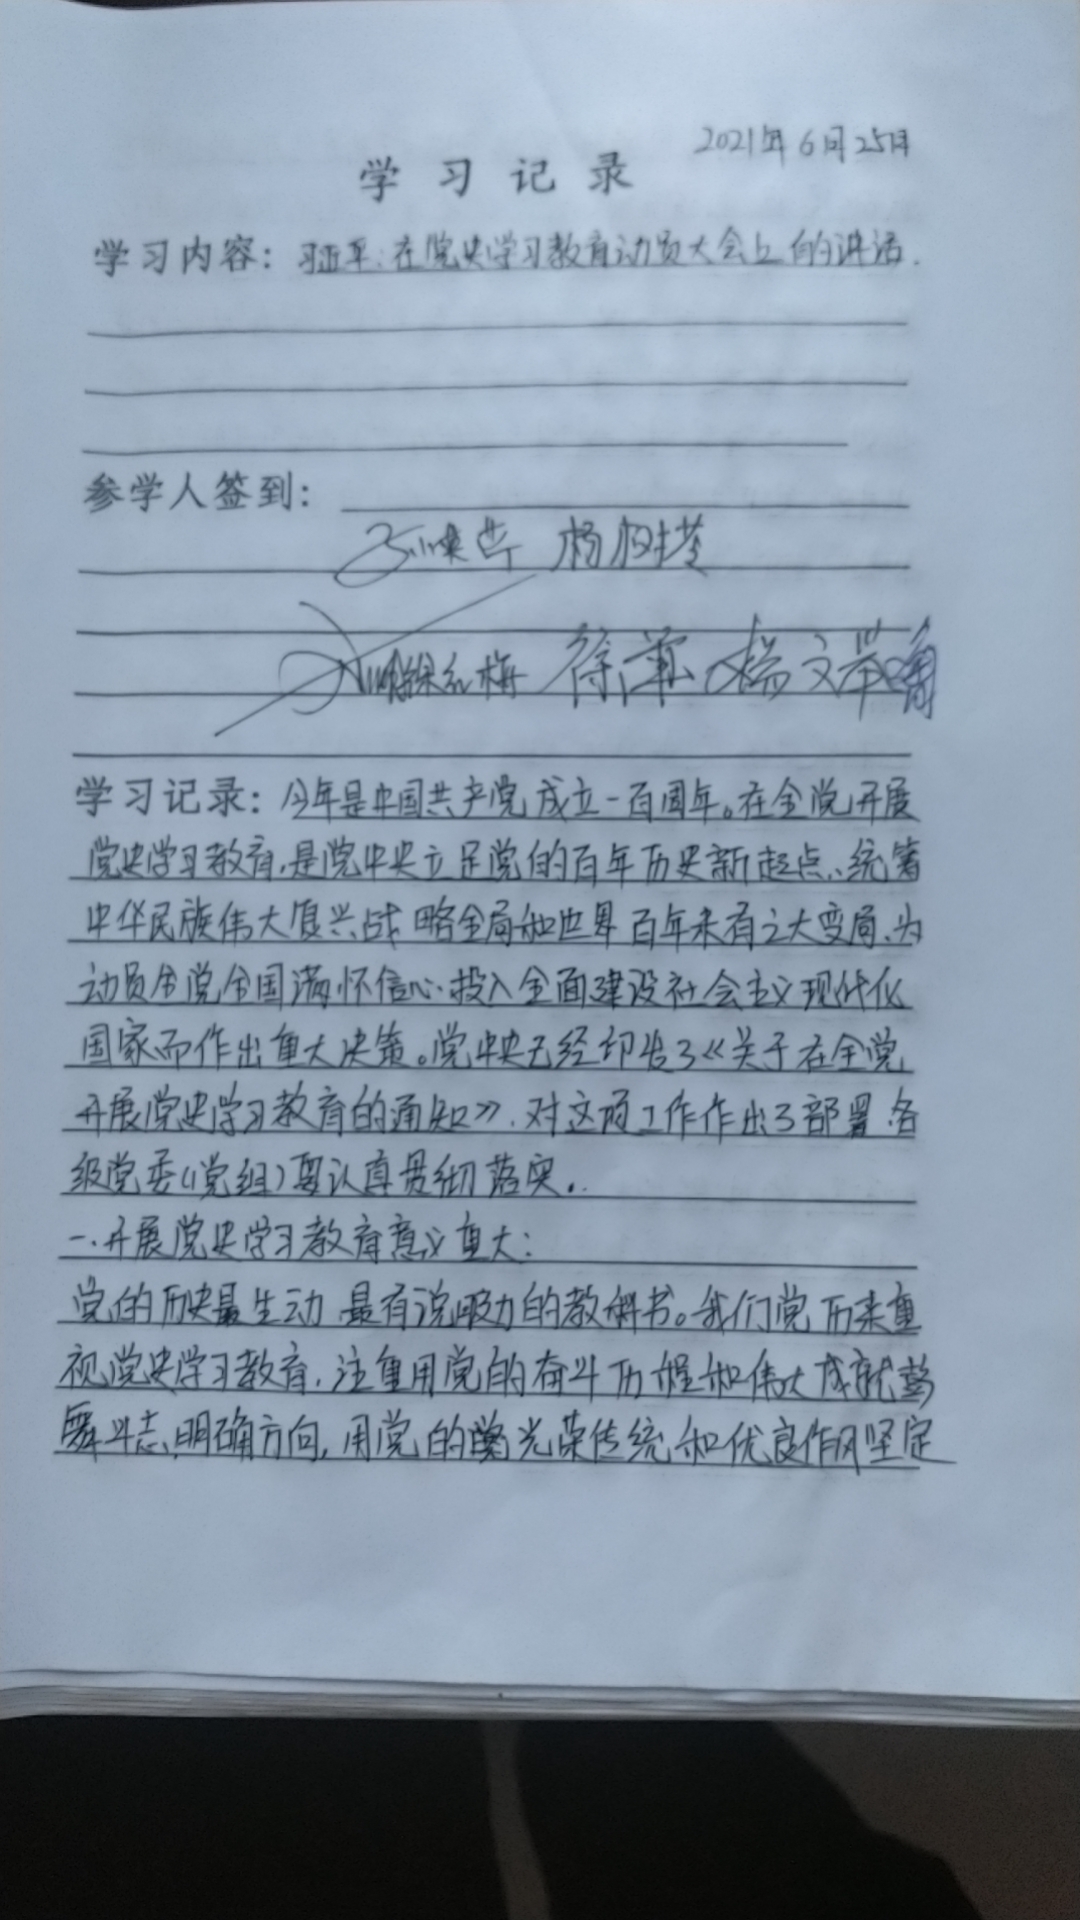 2021年6月25日
学习记录
学习内容：习近平：在党史学习教育动员大会上的讲话.
参学人签到：
杨
红梅 徐 杨文
学习记录：今年是中国共产党成立一百周年。在全党开展
党史学习教育,是党中央立足党的百年历史新起点、统筹
中华民族伟大复兴战略全局和世界百年未有之大变局、为
动员全党全国满怀信心投入全面建设社会主义现代化
国家而作出重大决策。党中央已经印发了《关于在全党
开展党史学习教育的通知》,对这项工作作出了部署,各
级党委(党组)要认真贯彻落实。
一.开展党史学习教育意义重大:
党的历史最生动 最有说服力的教科书。我们党历来重
视党史学习教育,注重用党的奋斗历程和伟大成就鼓
舞斗志,明确方向,用党的光荣传统和优良作风坚定